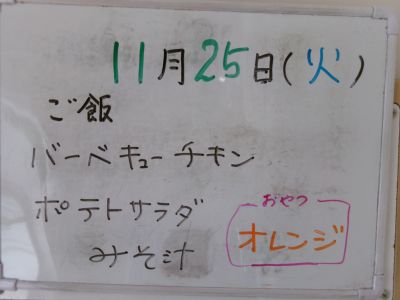 11月25日(火)
ご飯
バーベキューチキン
ポテトサラダ
みそ汁
おやつ
オレンジ